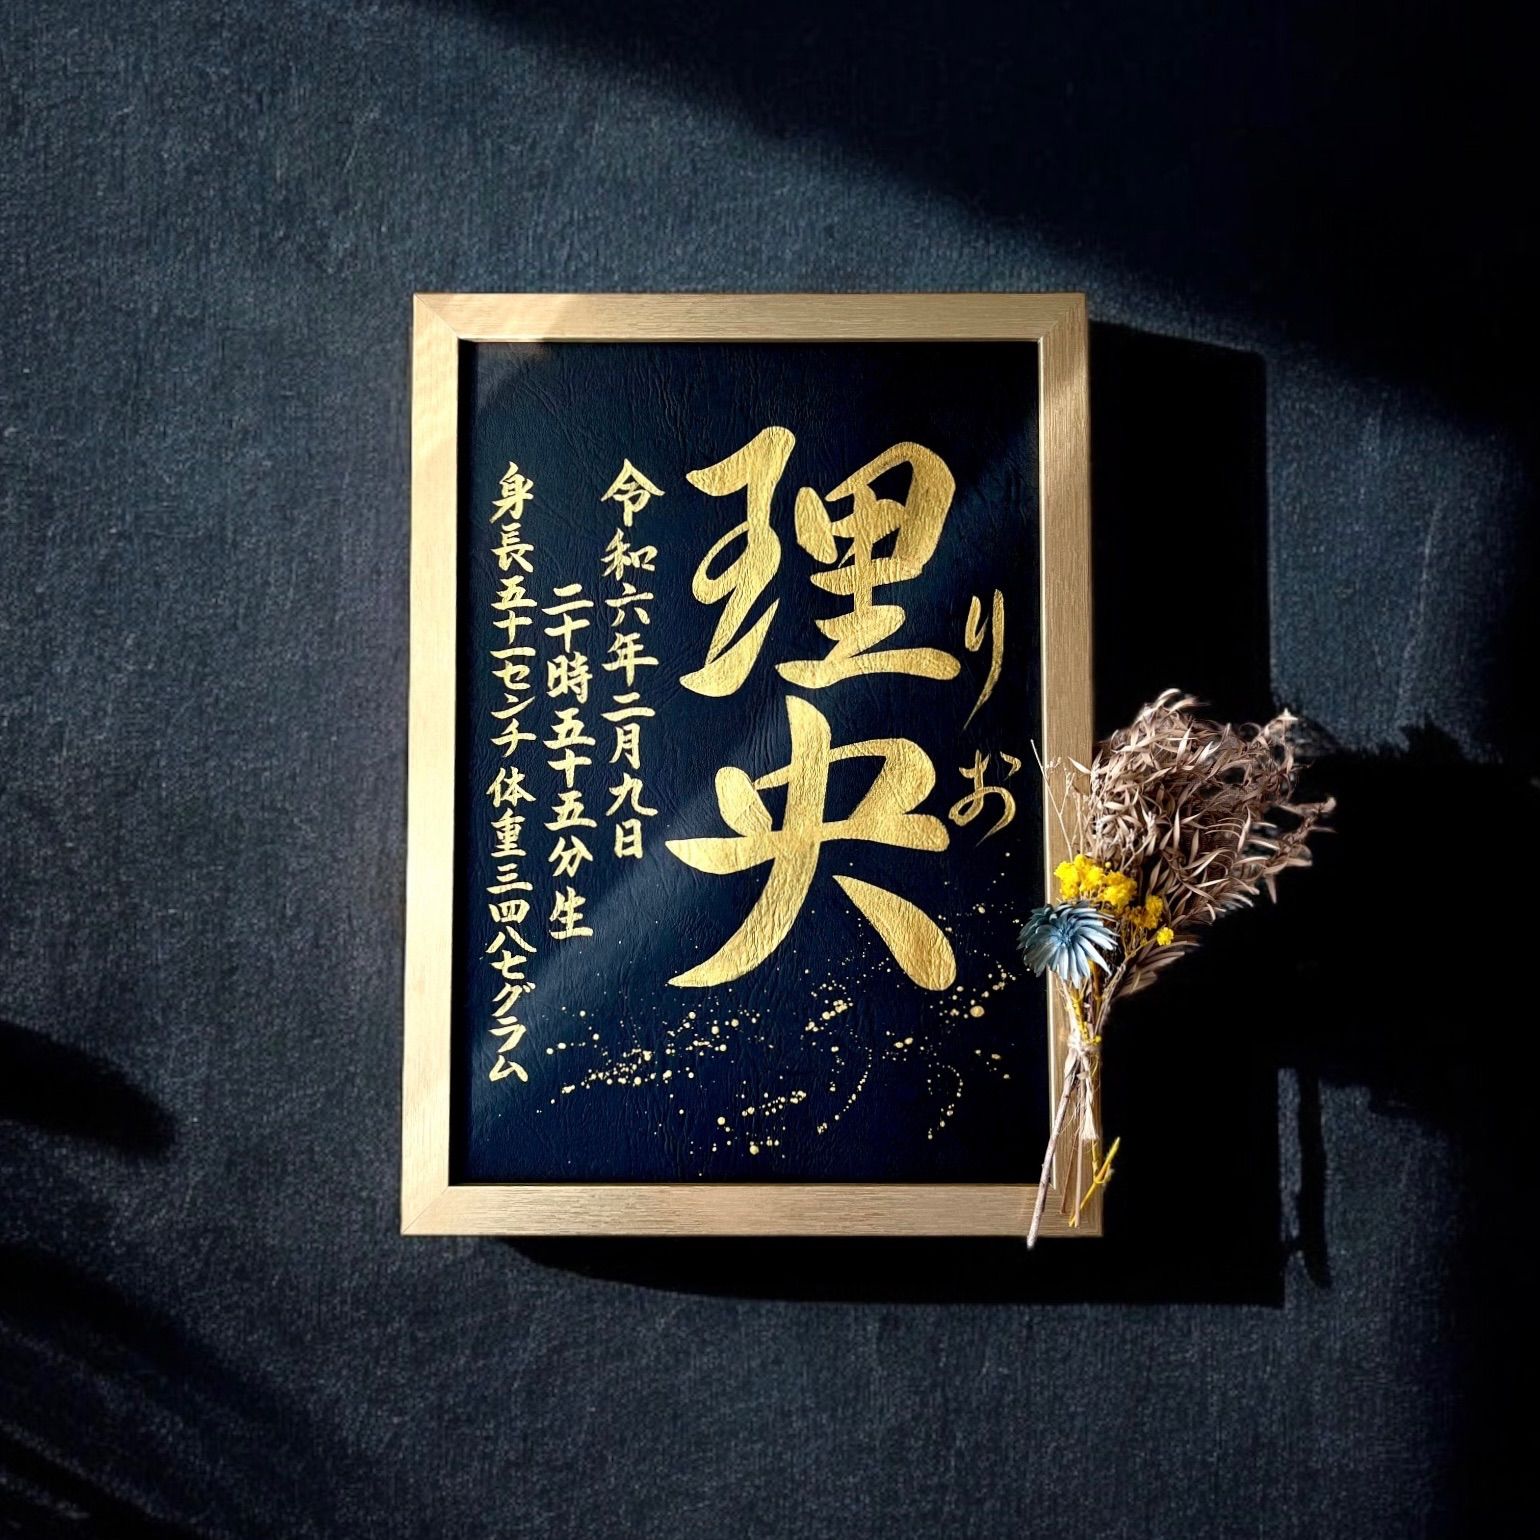 りお
理央
令和六年二月九日
二十時五十五分生
身長五十一センチ体重三四八七グラム